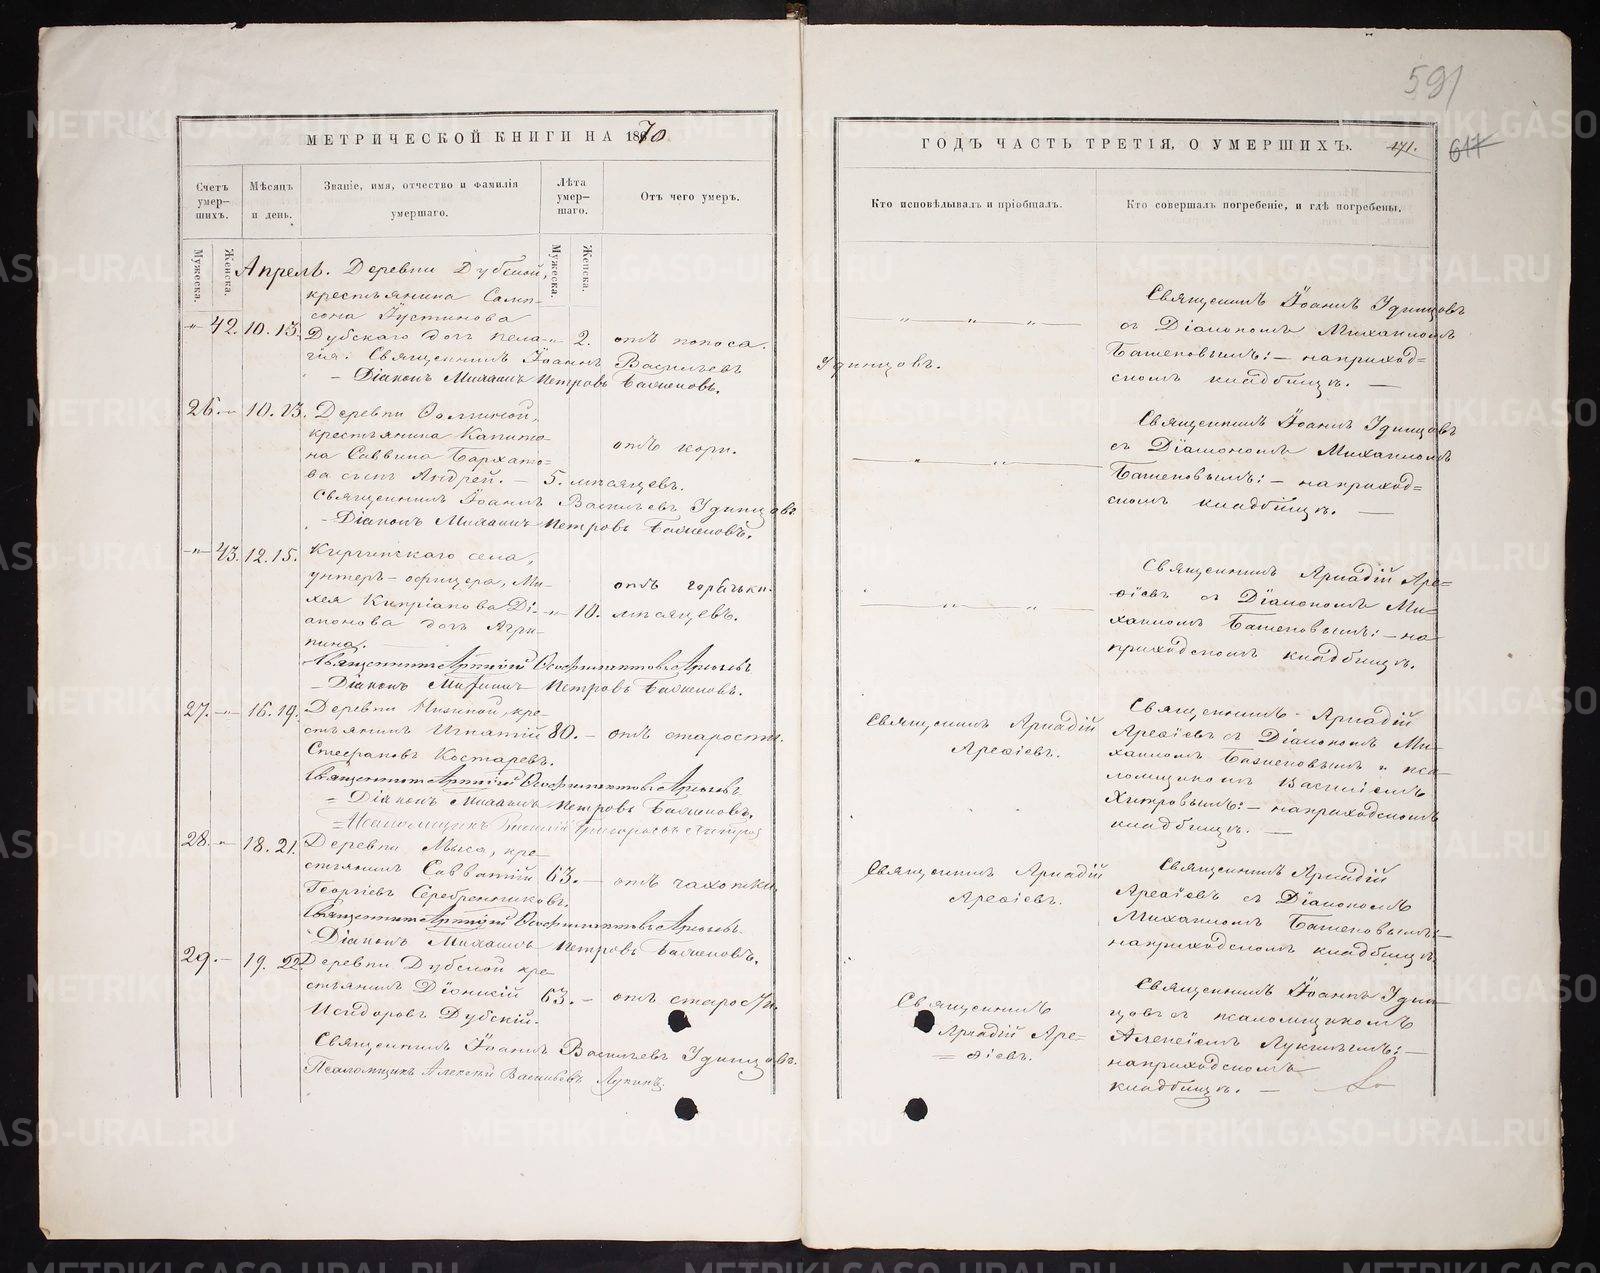 591
МЕТРИЧЕСКОЙ КНИГИ НА 1870
ГОДЪ ЧАСТЬ ТРЕТІЯ, О УМЕРШИХЪ.
171.
617
Счетъ умер-шихъ.
Мѣсяцъ и день.
Званіе, имя, отчество и фамилія умершаго.
Лѣта умер-шаго.
Отъ чего умеръ.
Кто исповѣдывалъ и пріобщалъ.
Кто совершалъ погребеніе, и гдѣ погребены.
Мужеска.
Женска.
Мужеска.
Женска.
Апрель. Деревни Дубской,
крестьянина Самп-
сона Іустинова
42. 10. 13. Дубскаго дочь Пела- 2. отъ поноса.
гія. Священникъ Іоаннъ Васильевъ
Удинцовъ.
Діаконъ Михаилъ Петровъ Баженовъ.
Священникъ Іоаннъ Удинцовъ
съ Діакономъ Михаиломъ
Баженовымъ: – на приход=
скомъ кладбищѣ. —
26. 10. 13. Деревни
крестьянина Капито-
на Саввина Бархато=
ва сынъ Андрей. — 5. мѣсяцевъ.
отъ кори.
Священникъ Іоаннъ Васильевъ Удинцовъ.
Діаконъ Михаилъ Петровъ Баженовъ.
Священникъ Іоаннъ Удинцовъ
съ Діакономъ Михаиломъ
Баженовымъ: – на приход=
скомъ кладбищѣ. —
43. 12. 15. Киргинскаго села,
унтеръ-офицера, Ми-
хея Кипріанова Ді-
аконова дочь Агри-
пина.
10. мѣсяцевъ.
отъ горячки.
Священникъ Аркадій Арефіевъ
Діаконъ Михаилъ Петровъ Баженовъ.
Священникъ Аркадій Аре=
фіевъ съ Діакономъ Ми-
хаиломъ Баженовымъ: – на
приходскомъ кладбищѣ.
27. 16. 19. Деревни кре-
стьянинъ Игнатій 80. — отъ старости.
Стефановъ Костаревъ.
Священникъ Аркадій Арефіевъ
Діаконъ Михаилъ Петровъ Баженовъ.
Псаломщикъ Василій Григорьевъ Хитровъ
Священникъ Аркадій
Арефіевъ.
Священникъ Аркадій
Арефіевъ съ Діакономъ Ми-
хаиломъ Баженовымъ и пса-
ломщикомъ Василіемъ
Хитровымъ: – на приходскомъ
кладбищѣ. —
28. 18. 21. Деревни Мыса, кре-
стьянинъ Савватій 63. — отъ чахотки.
Георгіевъ Серебренниковъ.
Священникъ Аркадій Арефіевъ
Діаконъ Михаилъ Петровъ Баженовъ.
Священникъ Аркадій
Арефіевъ.
Священникъ Аркадій
Арефіевъ съ Діакономъ
Михаиломъ Баженовымъ:–
на приходскомъ кладбищѣ.
29. 19. 22. Деревни Дубской кре-
стьянинъ Діонисій 63. — отъ старости.
Исидоровъ Дубскій.
Священникъ Іоаннъ Васильевъ Удинцовъ.
Псаломщикъ Алексѣй Васильевъ Лукинъ.
Священникъ
Аркадій Аре=
= фіевъ.
Священникъ Іоаннъ Удин-
цовъ съ псаломщикомъ
Алексіемъ Лукинымъ: –
на приходскомъ
кладбищѣ. —
METRIKI.GASO-URAL.RU